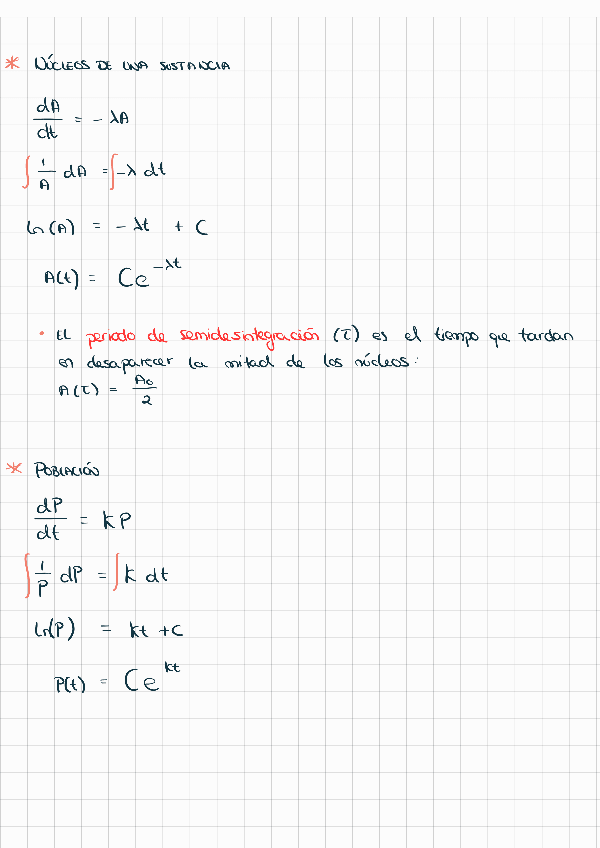 * NÚCLEOS DE UNA SUSTANCIA
dA/dt = - λA
∫ 1/A dA = ∫ -λ dt
ln(A) = - λt + C
A(t) = Ce^-λt
• EL periodo de semidesintegración (τ) es el tiempo que tardan
en desaparecer la mitad de los núcleos:
A(τ) = A₀/2
* POBLACIÓN
dP/dt = kP
∫ 1/P dP = ∫ k dt
ln(P) = kt + C
P(t) = Ce^kt